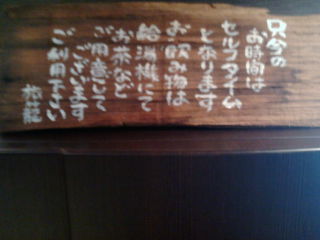 只今の
お時間は
セルフタイム
と承ります
お飲み物は
給湯機にて
お茶など
ご用意して
ございます
ご利用下さい